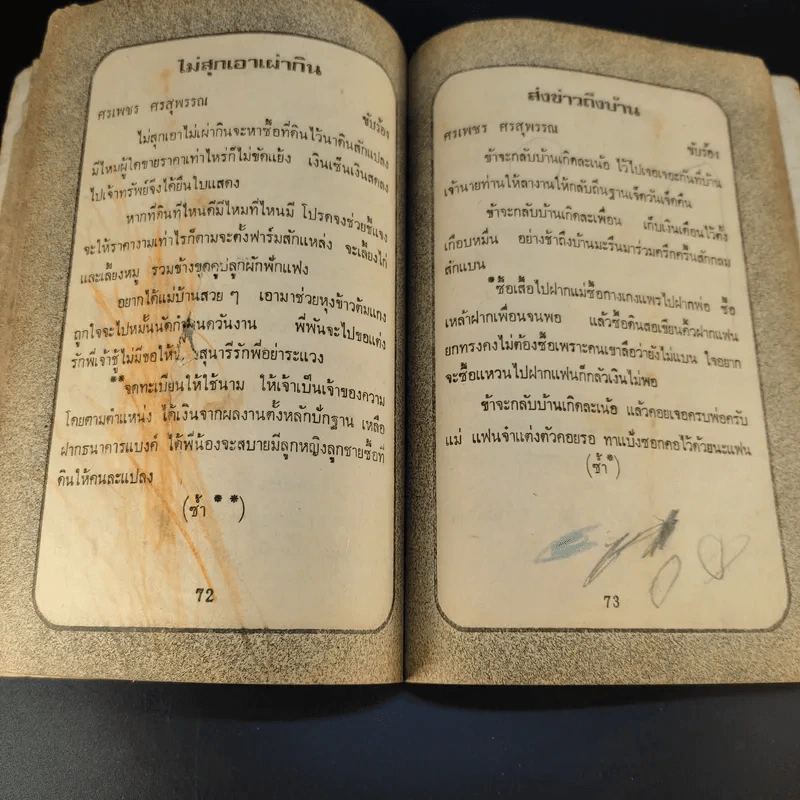 ไม่สุกเอาเผากิน
ศรเพชร ศรสุพรรณ ขับร้อง
ไม่สุกเอาไม่เผากินจะหาซื้อที่ดินไว้นาดินสักแปลง
มีไหมผู้ใดขายราคาเท่าไหร่ก็ไม่ขัดแย้ง เงินเซ็นเงินสดลง
ไปเจ้าทรัพย์จึงได้ยืนใบแสดง
หากที่ดินที่ไหนดีมีไหมที่ไหนมี โปรดจงช่วยชี้แจง
จะให้ราคางามเท่าไรก็ตามจะตั้งฟาร์มสักแหล่ง จะเลี้ยงไก่
และเลี้ยงหมู รวมข้างขุดคูปลูกผักฟักแฟง
อยากได้แม่บ้านสวย ๆ เอามาช่วยหุงข้าวต้มแกง
ถูกใจจะไปหมั้นนัดกำหนดวันงาน พี่พันจะไปขอแต่ง
รักพี่เจ้าชู้ไม่มีขอให้ สุนารีรักพี่อย่าระแวง
**จดทะเบียนให้ใช้นาม ให้เจ้าเป็นเจ้าของความ
โดยตามตำแหน่ง ได้เงินจากผลงานตั้งหลักปักฐาน เหลือ
ฝากธนาคารแบงค์ ได้พี่น้องจะสบายมีลูกหญิงลูกชายซื้อที่
ดินให้คนละแปลง
(ซ้ำ **)
72
ส่งข่าวถึงบ้าน
ศรเพชร ศรสุพรรณ ขับร้อง
ข้าจะกลับบ้านเกิดละเน้อ ไว้ไปเจอเจอะกันที่บ้าน
เจ้านายท่านให้ลางานให้กลับถิ่นฐานเจ็ดวันเจ็ดคืน
ข้าจะกลับบ้านเกิดละเพื่อน เก็บเงินเดือนไว้ตั้ง
เกือบหมื่น อย่างช้าถึงบ้านมะรืนมาร่วมครึกครื้นสักกลม
สักแบน
*ซื้อเสื้อไปฝากแม่ซื้อกางเกงแพรไปฝากพ่อ ซื้อ
เหล้าฝากเพื่อนจนพอ แล้วซื้อดินสอเขียนคิ้วฝากแฟน
ยกทรงคงไม่ต้องซื้อเพราะคนเขาลือว่ายังไม่แบน ใจอยาก
จะซื้อแหวนไปฝากแฟนก็กลัวเงินไม่พอ
ข้าจะกลับบ้านเกิดละเน้อ แล้วคอยเจอครบพ่อครับ
แม่ แฟนจ๋าแต่งตัวคอยรอ ทาแป้งซอกคอไว้ด้วยนะแฟน
(ซ้ำ*)
73